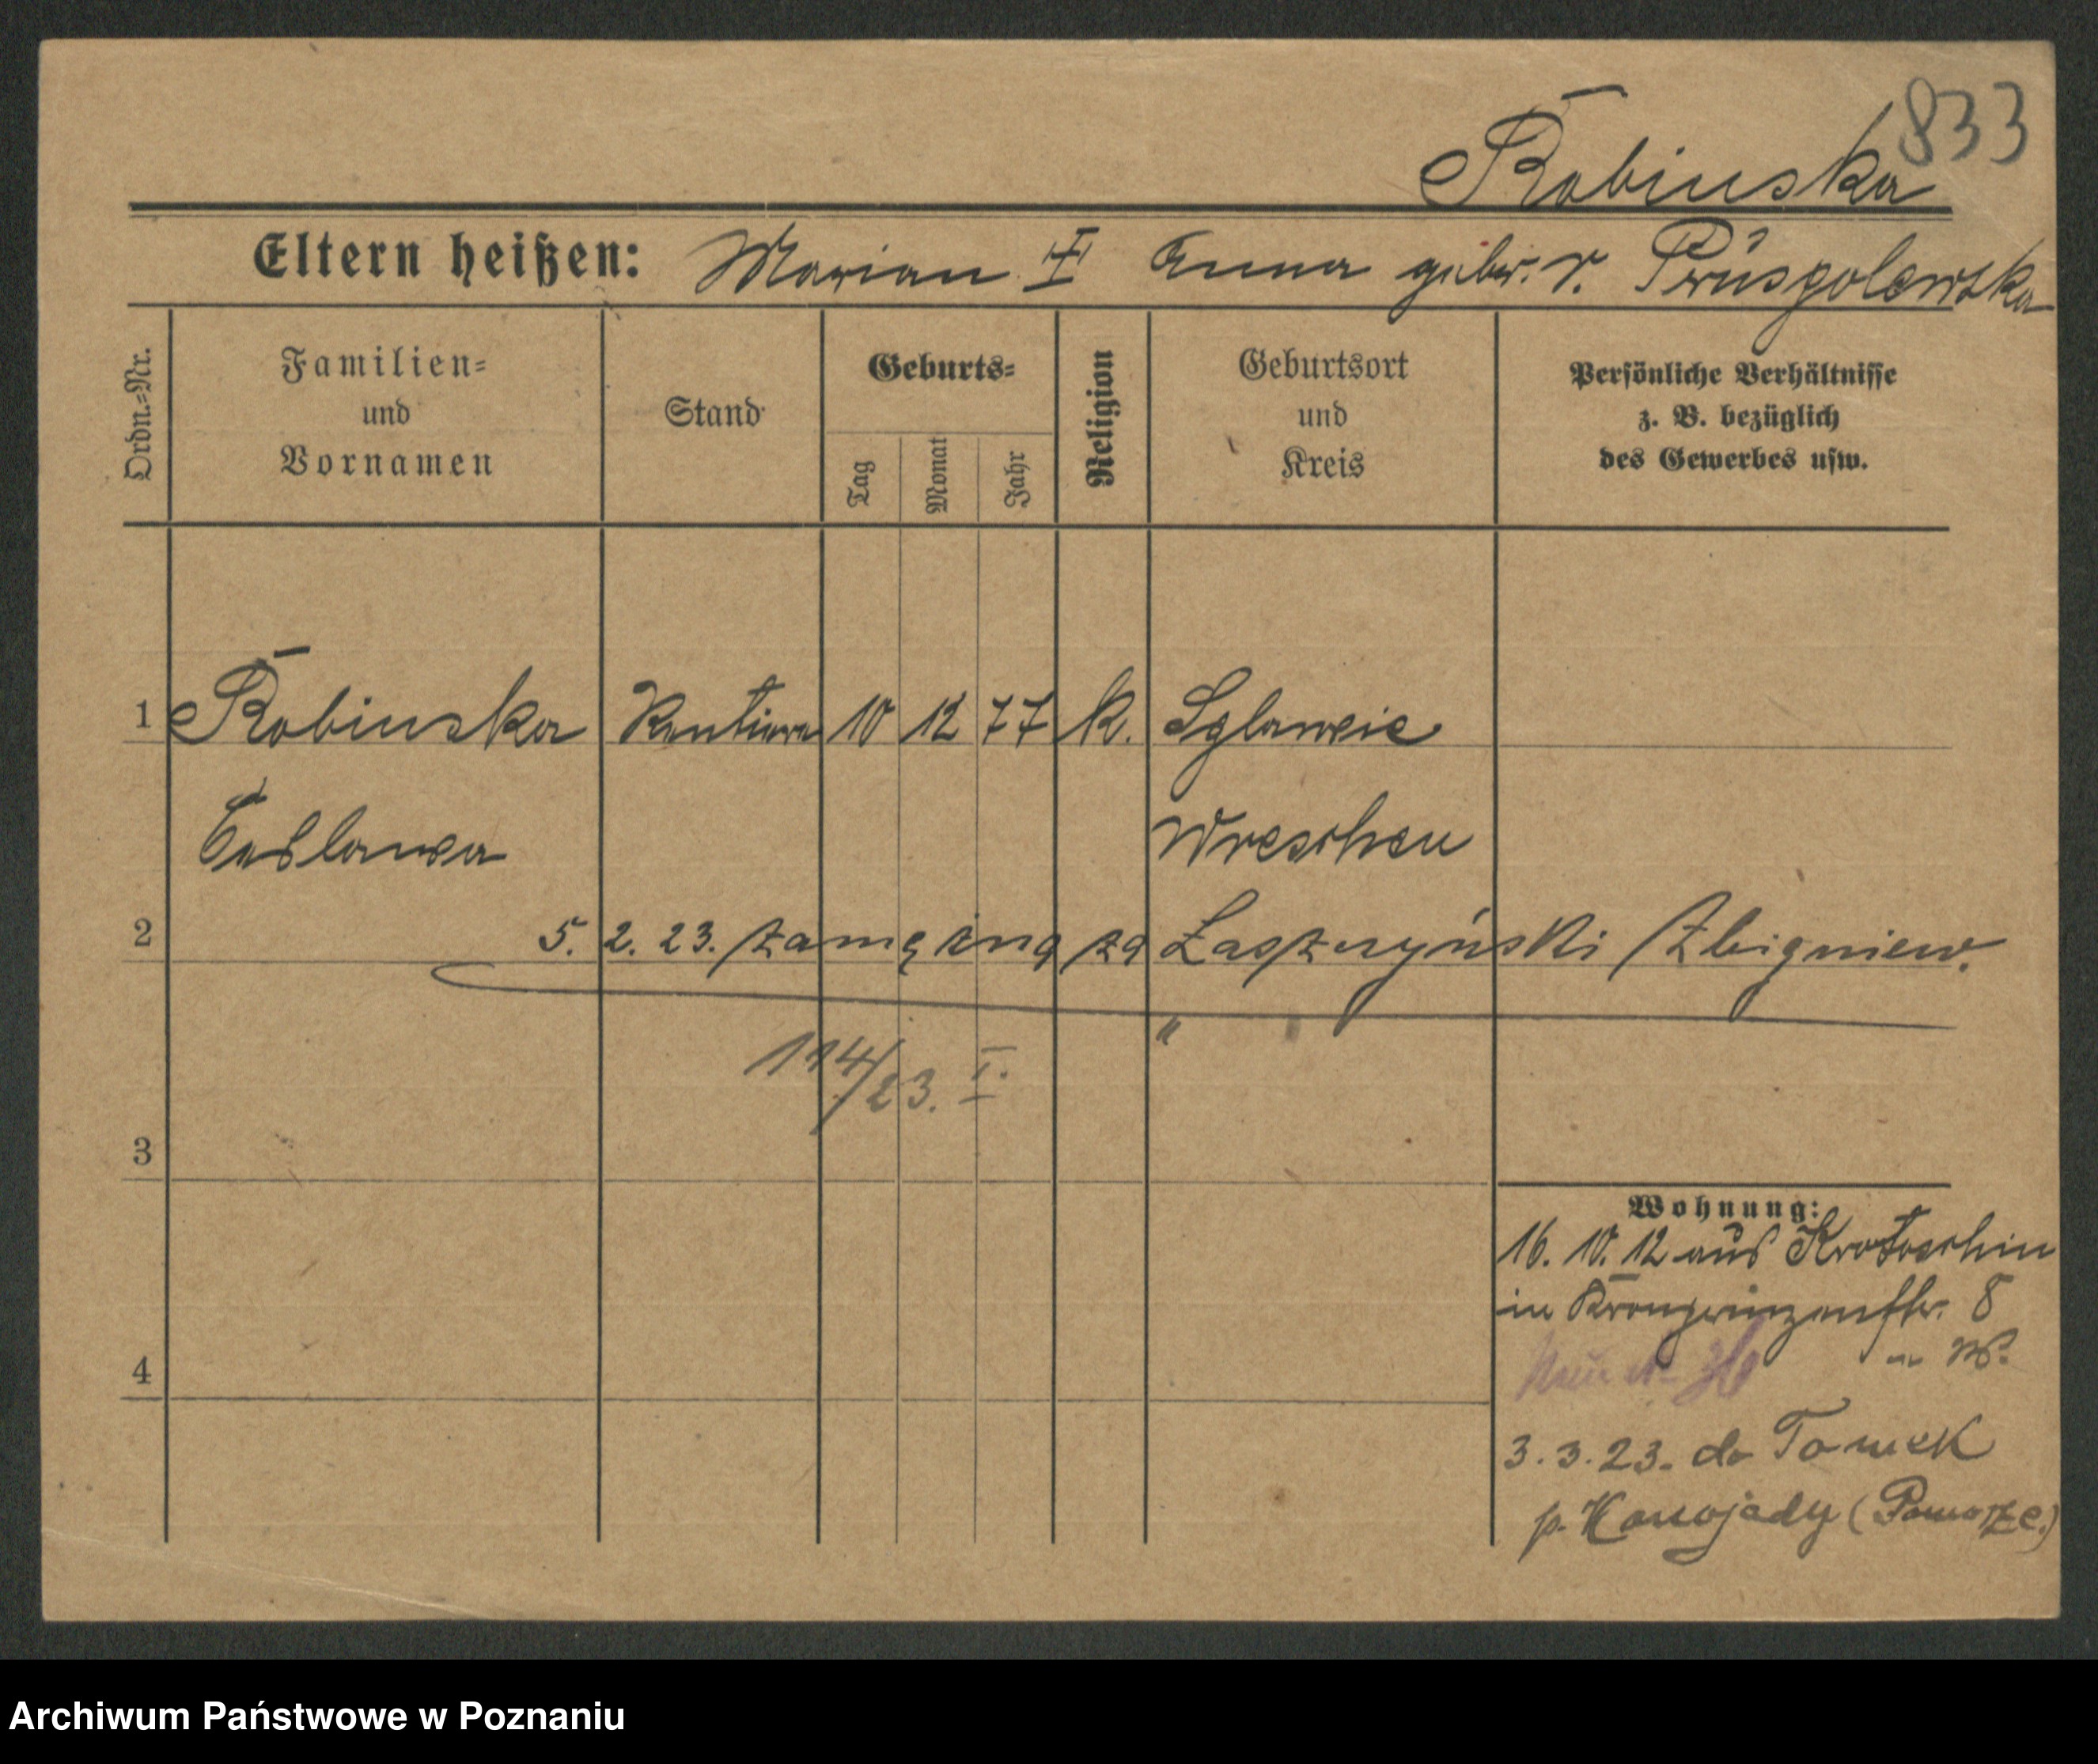 833
Rabinska
Eltern heißen: Marian I Anna gebor. v.
Ordn.-Nr.
Familien-
und
Vornamen
Stand
Geburts-
Tag
Monat
Jahr
Religion
Geburtsort
und
Kreis
Persönliche Verhältnisse
z. B. bezüglich
des Gewerbes usw.
1 Rabinska 10 12 77 k.
Wreschen
2 5. 2. 23. zamężna za Łaszczyński Zbigniew.
"
114/23. I.
3
4
Wohnung:
16. 10. 12 aus Krotoschin
in Kronprinzenstr. 8
3. 3. 23. do Tomek
p. Konojady (Pomorze.)
Archiwum Państwowe w Poznaniu